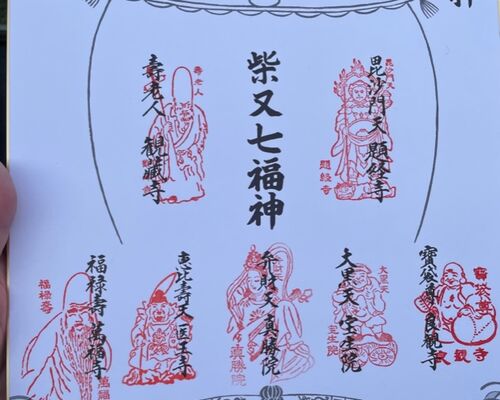 毘沙門天 題経寺
毘沙門天
題経寺
柴又七福神
壽老人 観蔵寺
寿老人
寳袋尊 良観寺
寳袋尊
良観寺
大黒天 宝生院
大黒天
宝生院
弁財天 真勝院
真勝院
恵比寿天 医王寺
福禄寿 萬福寺
福禄寿
萬福